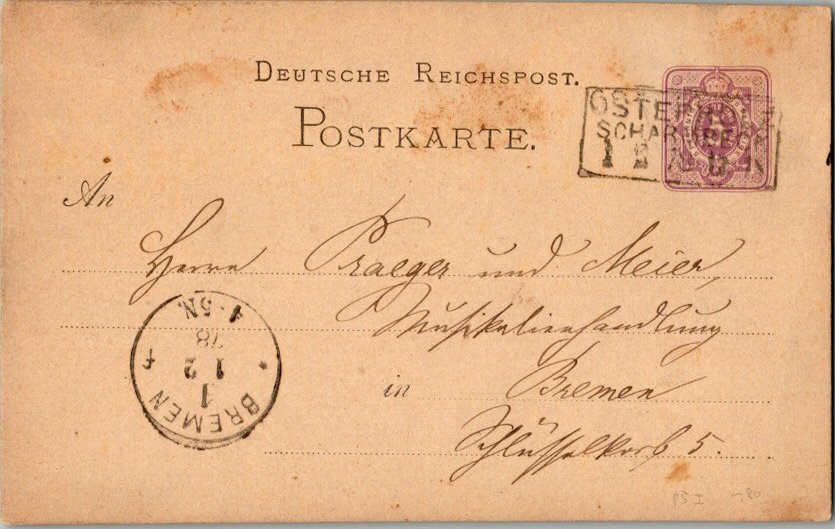 DEUTSCHE REICHSPOST.
POSTKARTE.
SCHARMBECK
An
Herrn Praeger und Meier,
Musikalienhandlung
in Bremen
Schlüsselkorb 5.
BREMEN
1
1 2
78
4-5N.